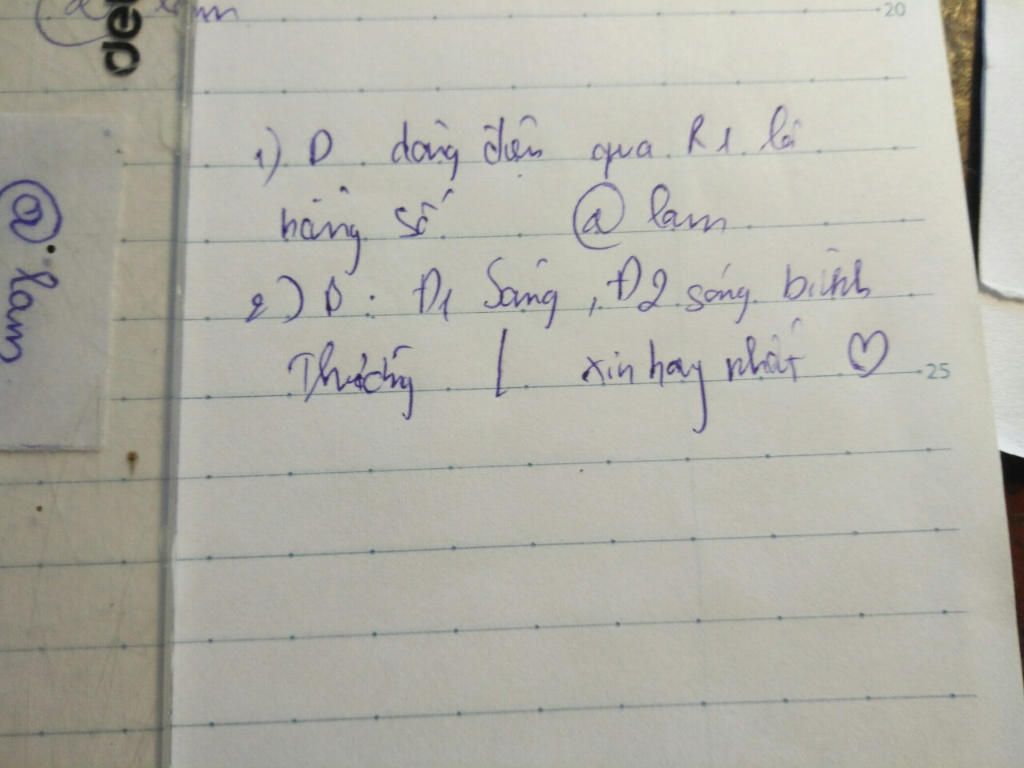 @ lam
20
deli
1) D. dòng điện qua R1 là
hằng số @ lam
2) D: Đ1 Sáng, Đ2 sáng bình
Thường xin hay nhất ♡
25
@. lam